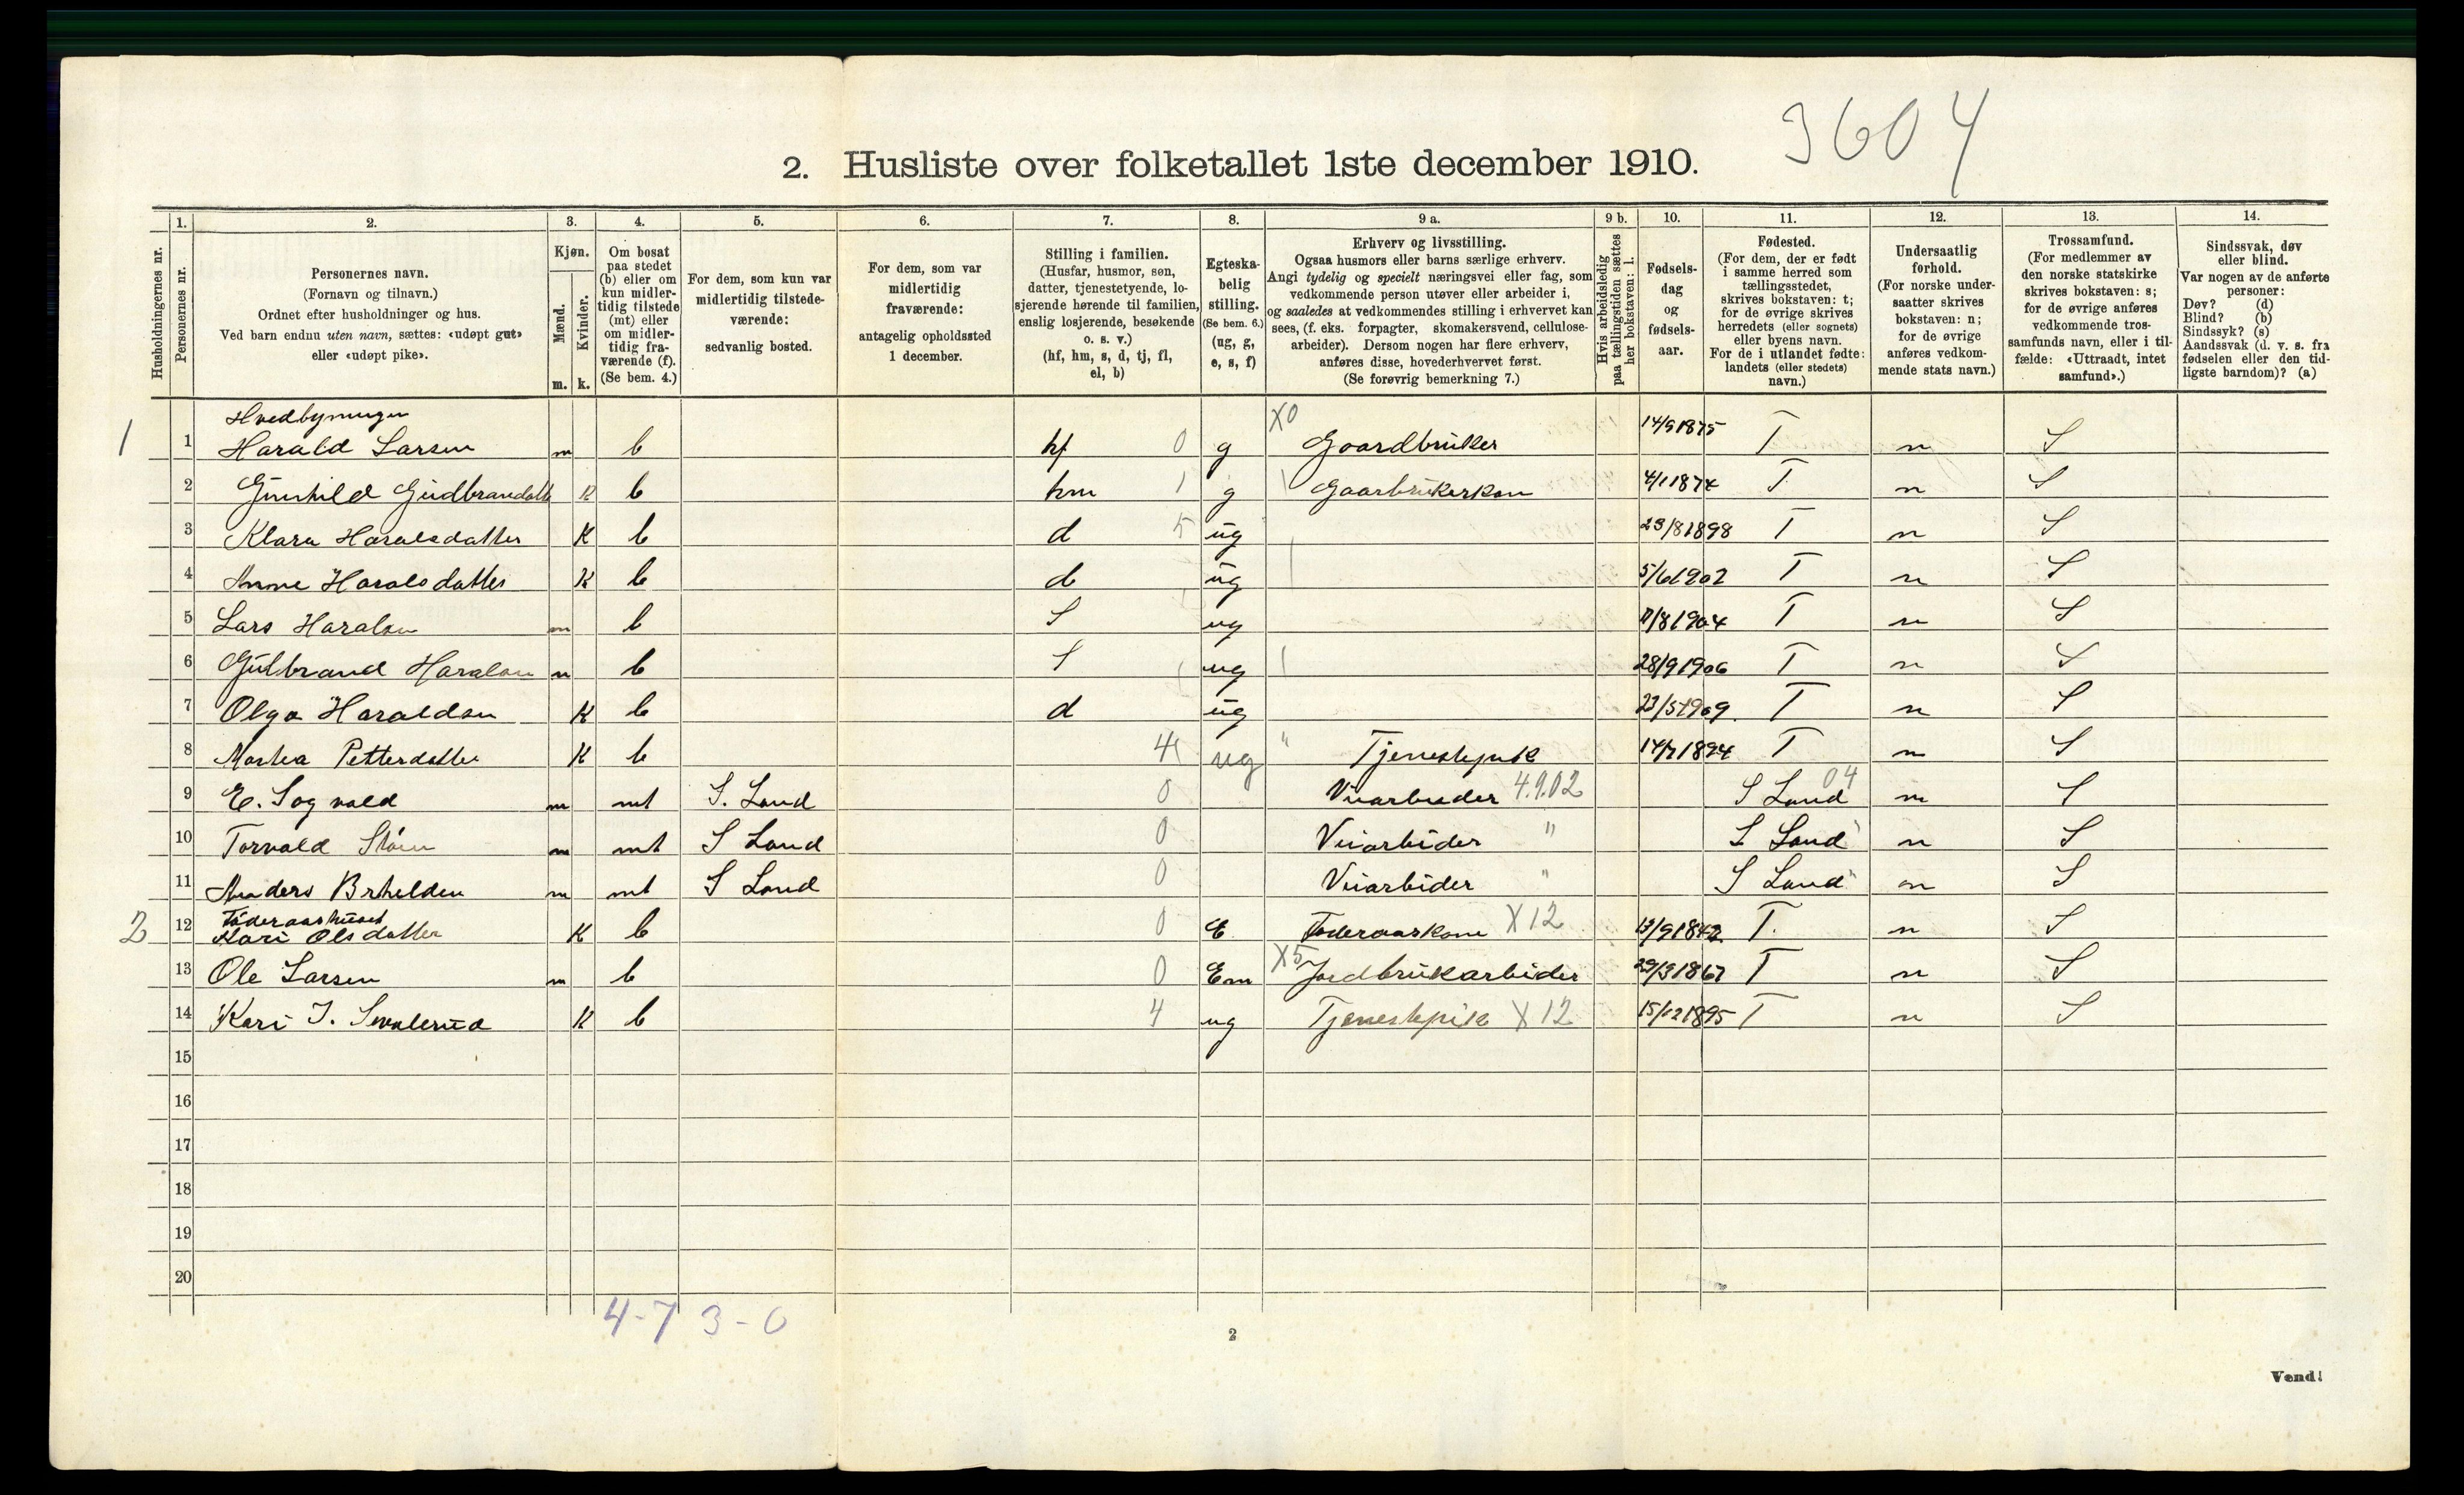 3604
2. Husliste over folketallet 1ste december 1910.
1. 2. 3. 4. 5. 6. 7. 8. 9 a. 9 b. 10. 11. 12. 13. 14.
Husholdningernes nr.
Personernes nr.
Personernes navn.
(Fornavn og tilnavn.)
Ordnet efter husholdninger og hus.
Ved barn endnu uten navn, sættes: «udøpt gut»
eller «udøpt pike».
Kjøn.
Mænd.
Kvinder.
m. k.
Om bosat
paa stedet
(b) eller om
kun midler-
tidig tilstede
(mt) eller
om midler-
tidig fra-
værende (f).
(Se bem. 4.)
For dem, som kun var
midlertidig tilstede-
værende:
sedvanlig bosted.
For dem, som var
midlertidig
fraværende:
antagelig opholdssted
1 december.
Stilling i familien.
(Husfar, husmor, søn,
datter, tjenestetyende, lo-
sjerende hørende til familien,
enslig losjerende, besøkende
o. s. v.)
(hf, hm, s, d, tj, fl,
el, b)
Egteska-
belig
stilling.
(Se bem. 6.)
(ug, g,
e, s, f)
Erhverv og livsstilling.
Ogsaa husmors eller barns særlige erhverv.
Angi tydelig og specielt næringsvei eller fag, som
vedkommende person utøver eller arbeider i,
og saaledes at vedkommendes stilling i erhvervet kan
sees, (f. eks. forpagter, skomakersvend, cellulose-
arbeider). Dersom nogen har flere erhverv,
anføres disse, hovederhvervet først.
(Se forøvrig bemerkning 7.)
Hvis arbeidsledig
paa tællingstiden sættes
her bokstaven: l.
Fødsels-
dag
og
fødsels-
aar.
Fødested.
(For dem, der er født
i samme herred som
tællingsstedet,
skrives bokstaven: t;
for de øvrige skrives
herredets (eller sognets)
eller byens navn.
For de i utlandet fødte:
landets (eller stedets)
navn.)
Undersaatlig
forhold.
(For norske under-
saatter skrives
bokstaven: n;
for de øvrige
anføres vedkom-
mende stats navn.)
Trossamfund.
(For medlemmer av
den norske statskirke
skrives bokstaven: s;
for de øvrige anføres
vedkommende tros-
samfunds navn, eller i til-
fælde: «Uttraadt, intet
samfund».)
Sindssvak, døv
eller blind.
Var nogen av de anførte
personer:
Døv? (d)
Blind? (b)
Sindssyk? (s)
Aandssvak (d. v. s. fra
fødselen eller den tid-
ligste barndom)? (a)
Hvedbyningen
1 1 Harald Larsen m b hf 0 g X0 Gaardbruker 14/9 1875 T n S
2 Gunhild Gudbrandsdatt K b hm 1 g Gaarbrukerkon 4/1 1874 T. n S
3 Klara Haralsdatter K b d 5 ug 23/8 1898 T n S
4 Anne Haralsdatter K b d ug 5/6 1902 T n S
5 Lars Haralsen m b S ug 1904 T n S
6 Gulbrand Haralsen m b S ug 28/9 1906 T n S
7 Olga Haraldsen K b d ug 23/5 1909 T n S
8 Petterdatter K b 4 ug Tjenestepik 1894 T n S
9 E. Sogvald m mt S. Land 0 Viarbeder 4.9.02 S Land 04 n S
10 Torvald m mt S Land 0 Viarbider " S Land n S
11 Anders m mt S Land 0 Viarbider " S Land n S
Føderaashuset
2 12 Kari Olsdatter K b 0 E Føderaaskone X12 13/9 1842 T. n S
13 Ole Larsen m b 0 Em X5 Jordbrukarbider 29/3 1867 T n S
14 Kari J. K b 4 ug Tjenestepike X12 15/12 1895 T n S
15
16
17
18
19
20
4-7 3-0
2
Vend!